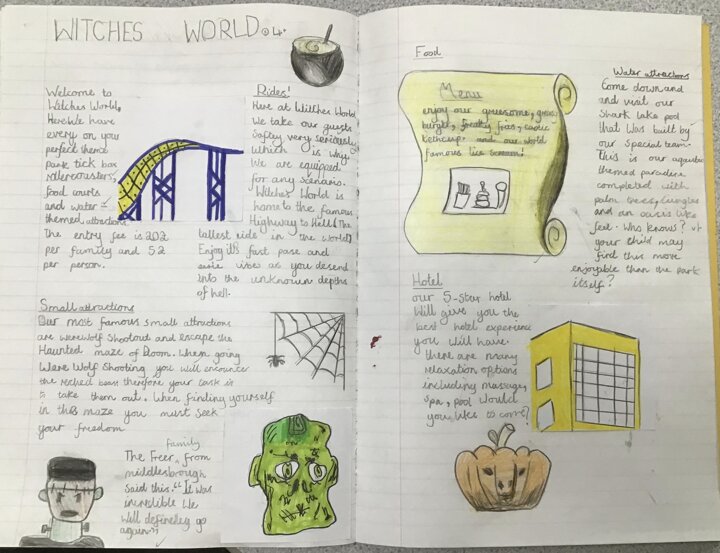 WITCHES WORLD
Welcome to
Witches World,
Here We have
every on your
perfect theme
park tick box
rollercoasters,
food courts
and water
themed attractions.
The entry fee is 202
per family and 52
per person.
Rides!
Here at Witches World
We take our guests
Saftey very seriously
Which is why
We are equipped
for any scenario.
Witches World is
home to the famous
Highway to Hell! The
tallest ride in the World!
Enjoy it's fast pase and
vibes as you desend
into the unknown depths
of hell.
Small attractions
Our most famous small attractions
are werewolf Shootout and Escape the
Haunted maze of Doom. When going
Were Wolf Shooting you will encounter
the beasts therefore your task is
to take them out. When finding yourself
in this maze you must seek
your freedom
family
The Freer, from
middlesbrough
said this: "It was
incredible We
Will defineley go
again"
Food
Menu
enjoy our gruesome,
burger, freaky fries, exotic
ketchup and our world
famous ice scream!
Water attractions
Come down and
and visit our
Shark lake pool
that was built by
our special team.
This is our aquatic
themed paradise
completed with
palm trees, jungles
and an oasis like
feel. Who knows?
your child may
find this more
enjoyable than the park
itself?
Hotel
our 5-star hotel
Will give you the
best hotel experience
you will have.
there are many
relaxation options
including massage,
spa, pool would
you like to come?